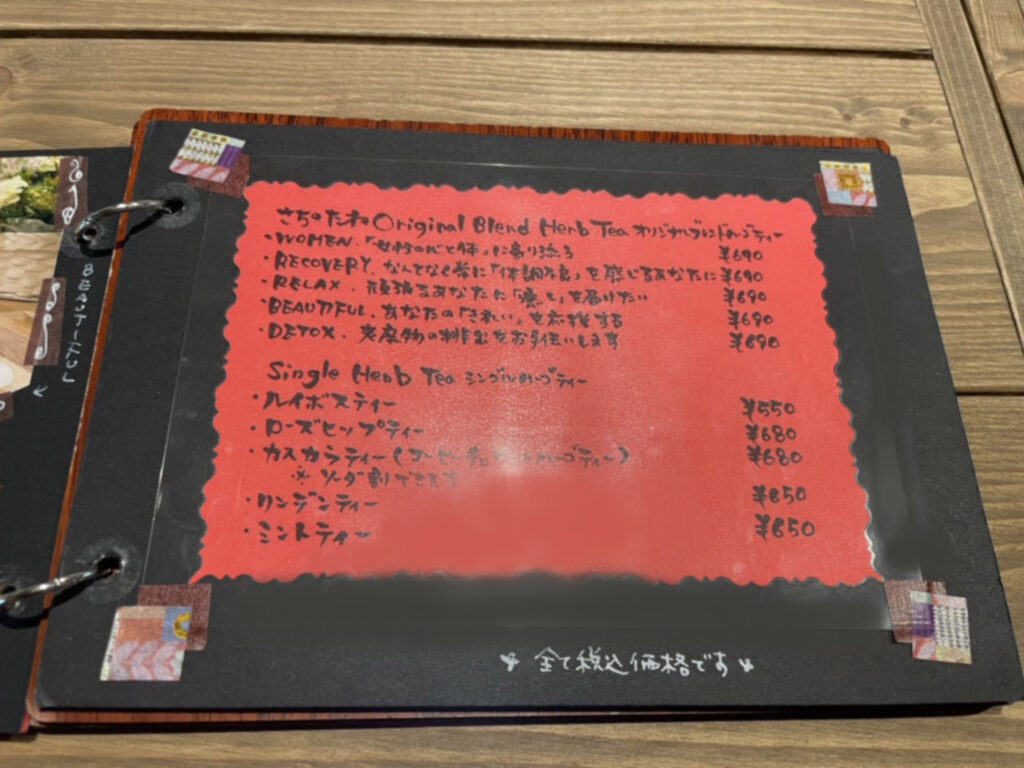 さちのたね Original Blend Herb Tea オリジナルブレンドハーブティー
・WOMEN.「女性の心と体」に寄り添う ¥690
・RECOVERY. なんとなく常に「体調不良」を感じるあなたに ¥690
・RELAX. 頑張るあなたに「癒し」を届けたい ¥690
・BEAUTIFUL. あなたの「きれい」を応援する ¥690
・DETOX. 老廃物の排出をお手伝いします ¥690
Single Herb Tea シングルハーブティー
・ルイボスティー ¥550
・ローズヒップティー ¥680
・カスカラティー(コーヒーチェリーのハーブティー) ¥680
※ソーダ割りできます
・リンデンティー ¥650
・ミントティー ¥650
全て税込価格です
BEAUTIFUL